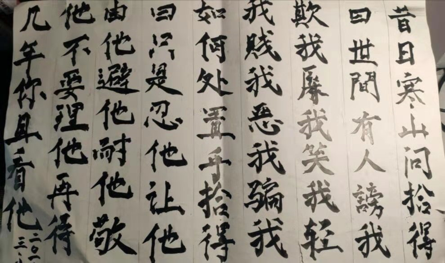 昔日寒山问拾得
曰世間有人謗我
欺我辱我笑我轻
我贱我恶我骗我
如何处置乎拾得
曰只是忍他让他
由他避他耐他敬
他不要理他再得
几年你且看他